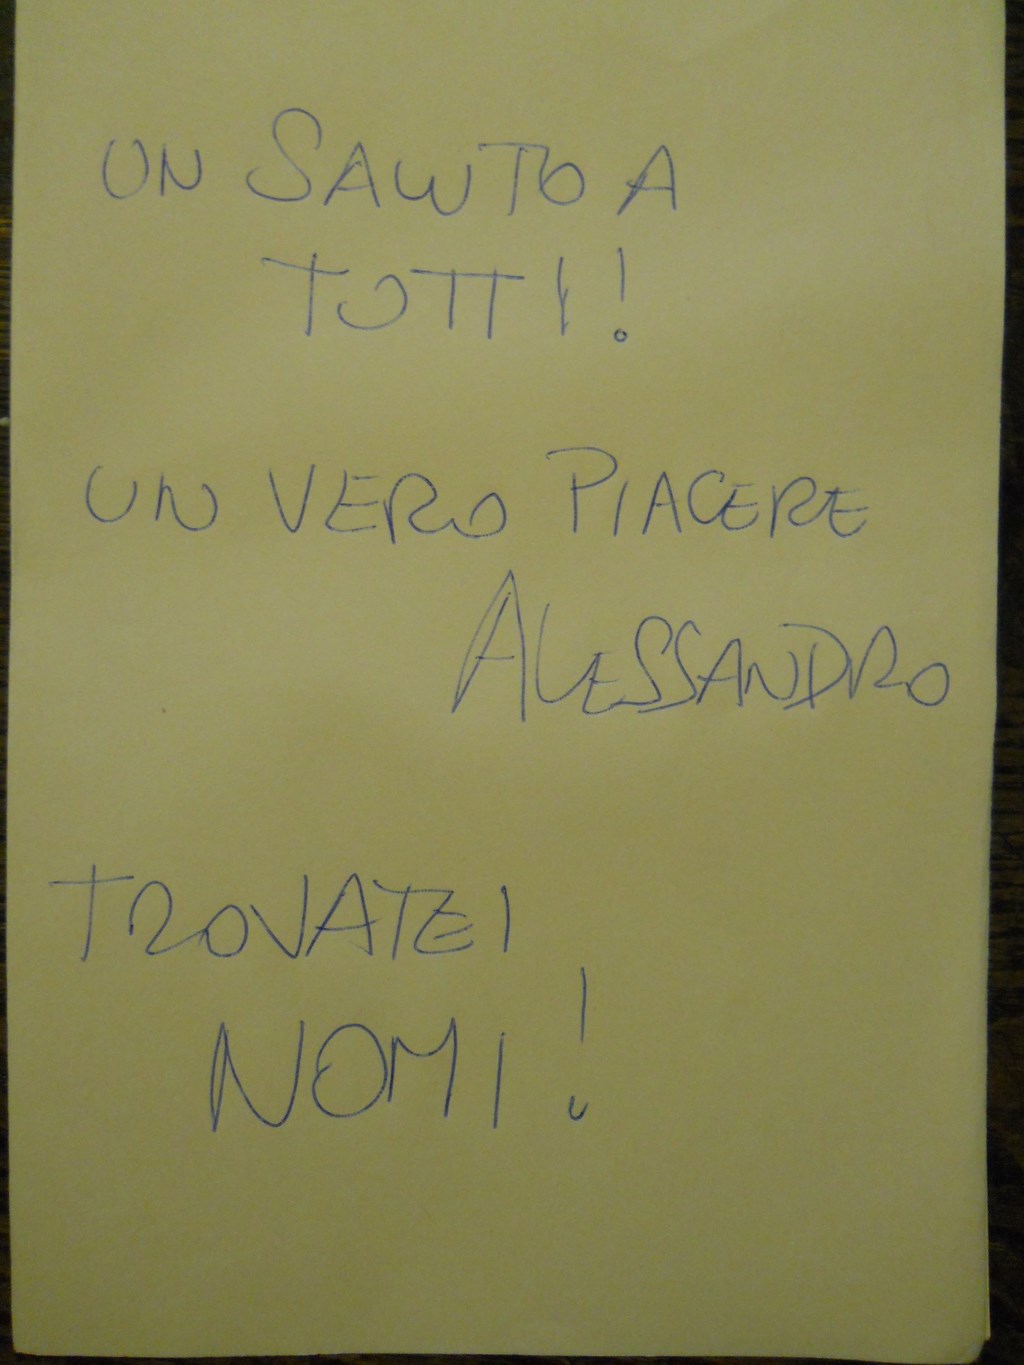 UN SALUTO A
TUTTI!
UN VERO PIACERE
ALESSANDRO
TROVATE I
NOMI!